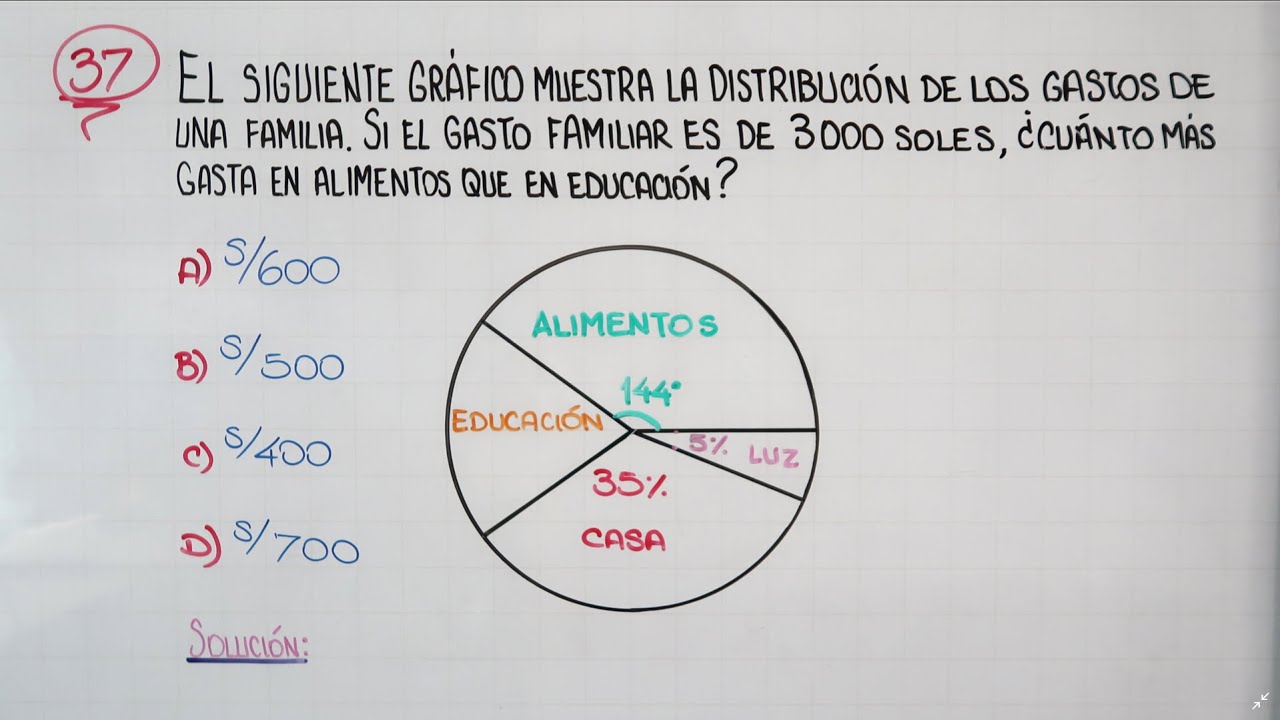 37 EL SIGUIENTE GRÁFICO MUESTRA LA DISTRIBUCIÓN DE LOS GASTOS DE
UNA FAMILIA. SI EL GASTO FAMILIAR ES DE 3000 SOLES, ¿CUÁNTO MÁS
GASTA EN ALIMENTOS QUE EN EDUCACIÓN?
A) S/600
B) S/500
C) S/400
D) S/700
ALIMENTOS
144°
EDUCACIÓN
5% LUZ
35%
CASA
SOLUCIÓN: